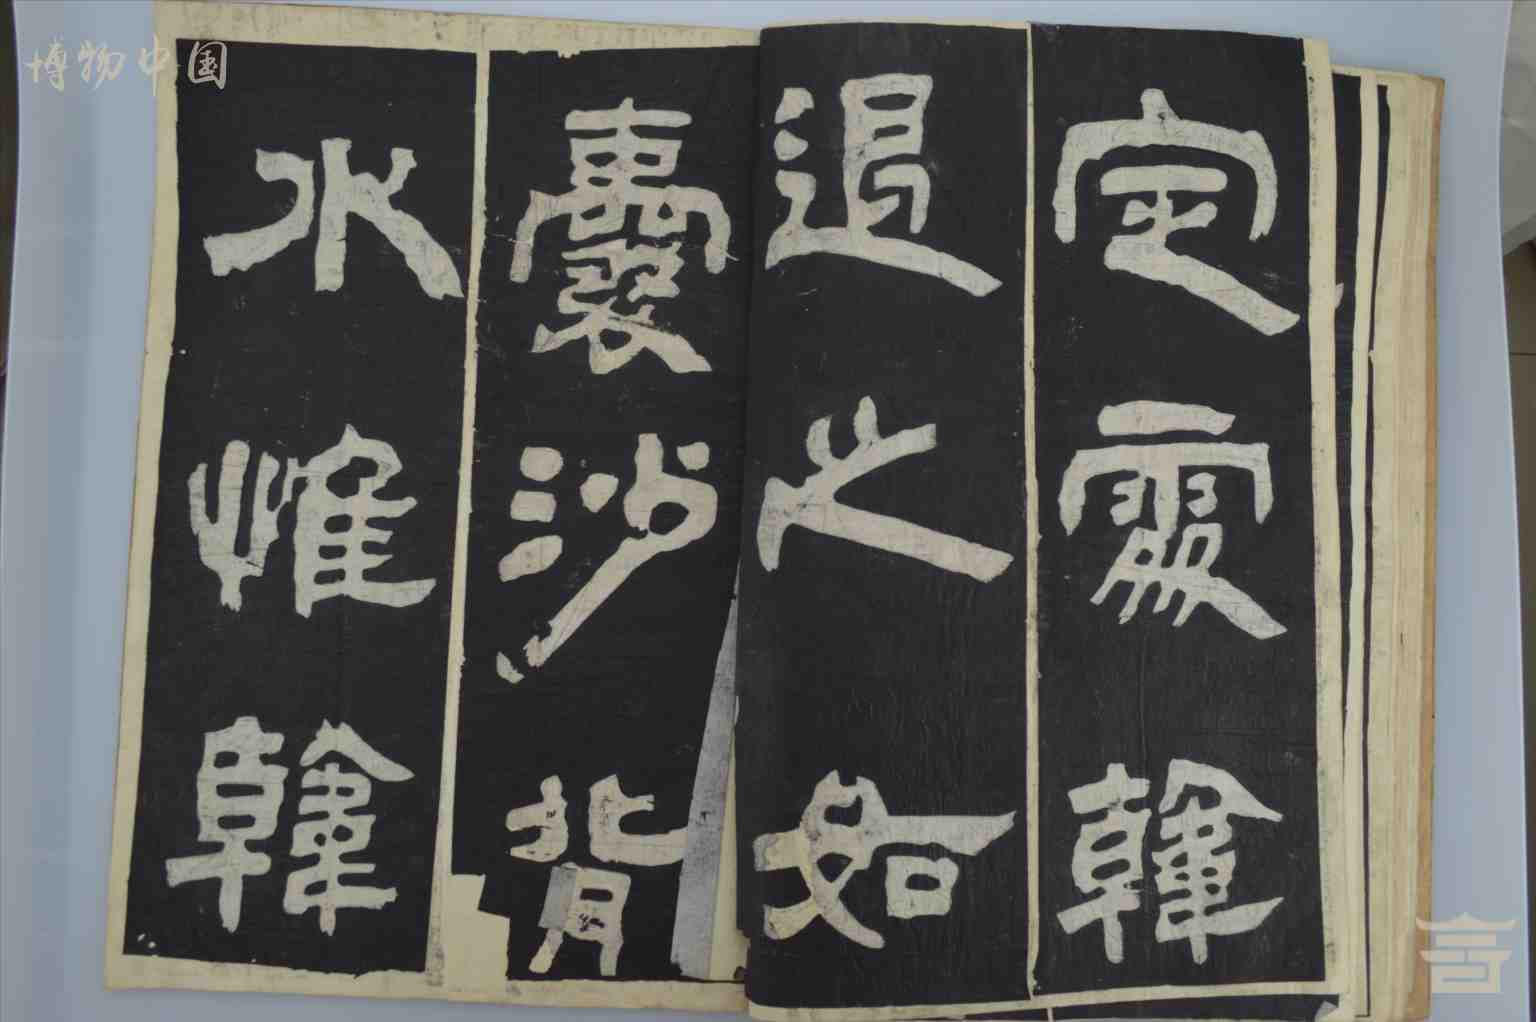 定霊韓
退之如
囊沙背
水惟韓
博物中国